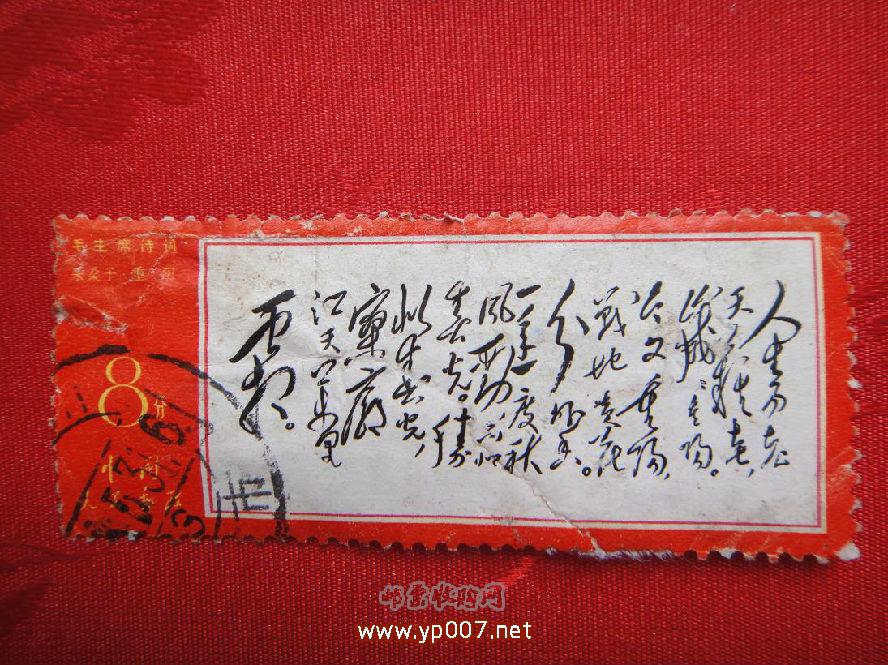 毛主席诗词
采桑子 重阳
8分
中国
人民邮政
人生易老
天难老,
岁岁重阳。
今又重阳,
战地黄花
分外香。
一年一度秋
风劲,不似
春光。胜
似春光,
寥廓
江天万里
霜。
市
邮票收购网
www.yp007.net